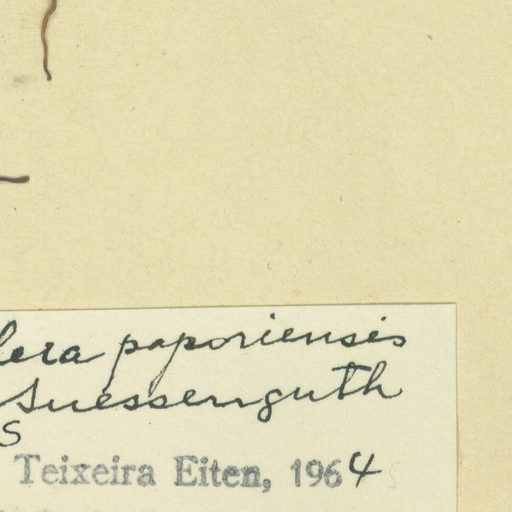 lera paporiensis
Suessenguth
s
Teixeira Eiten, 1964